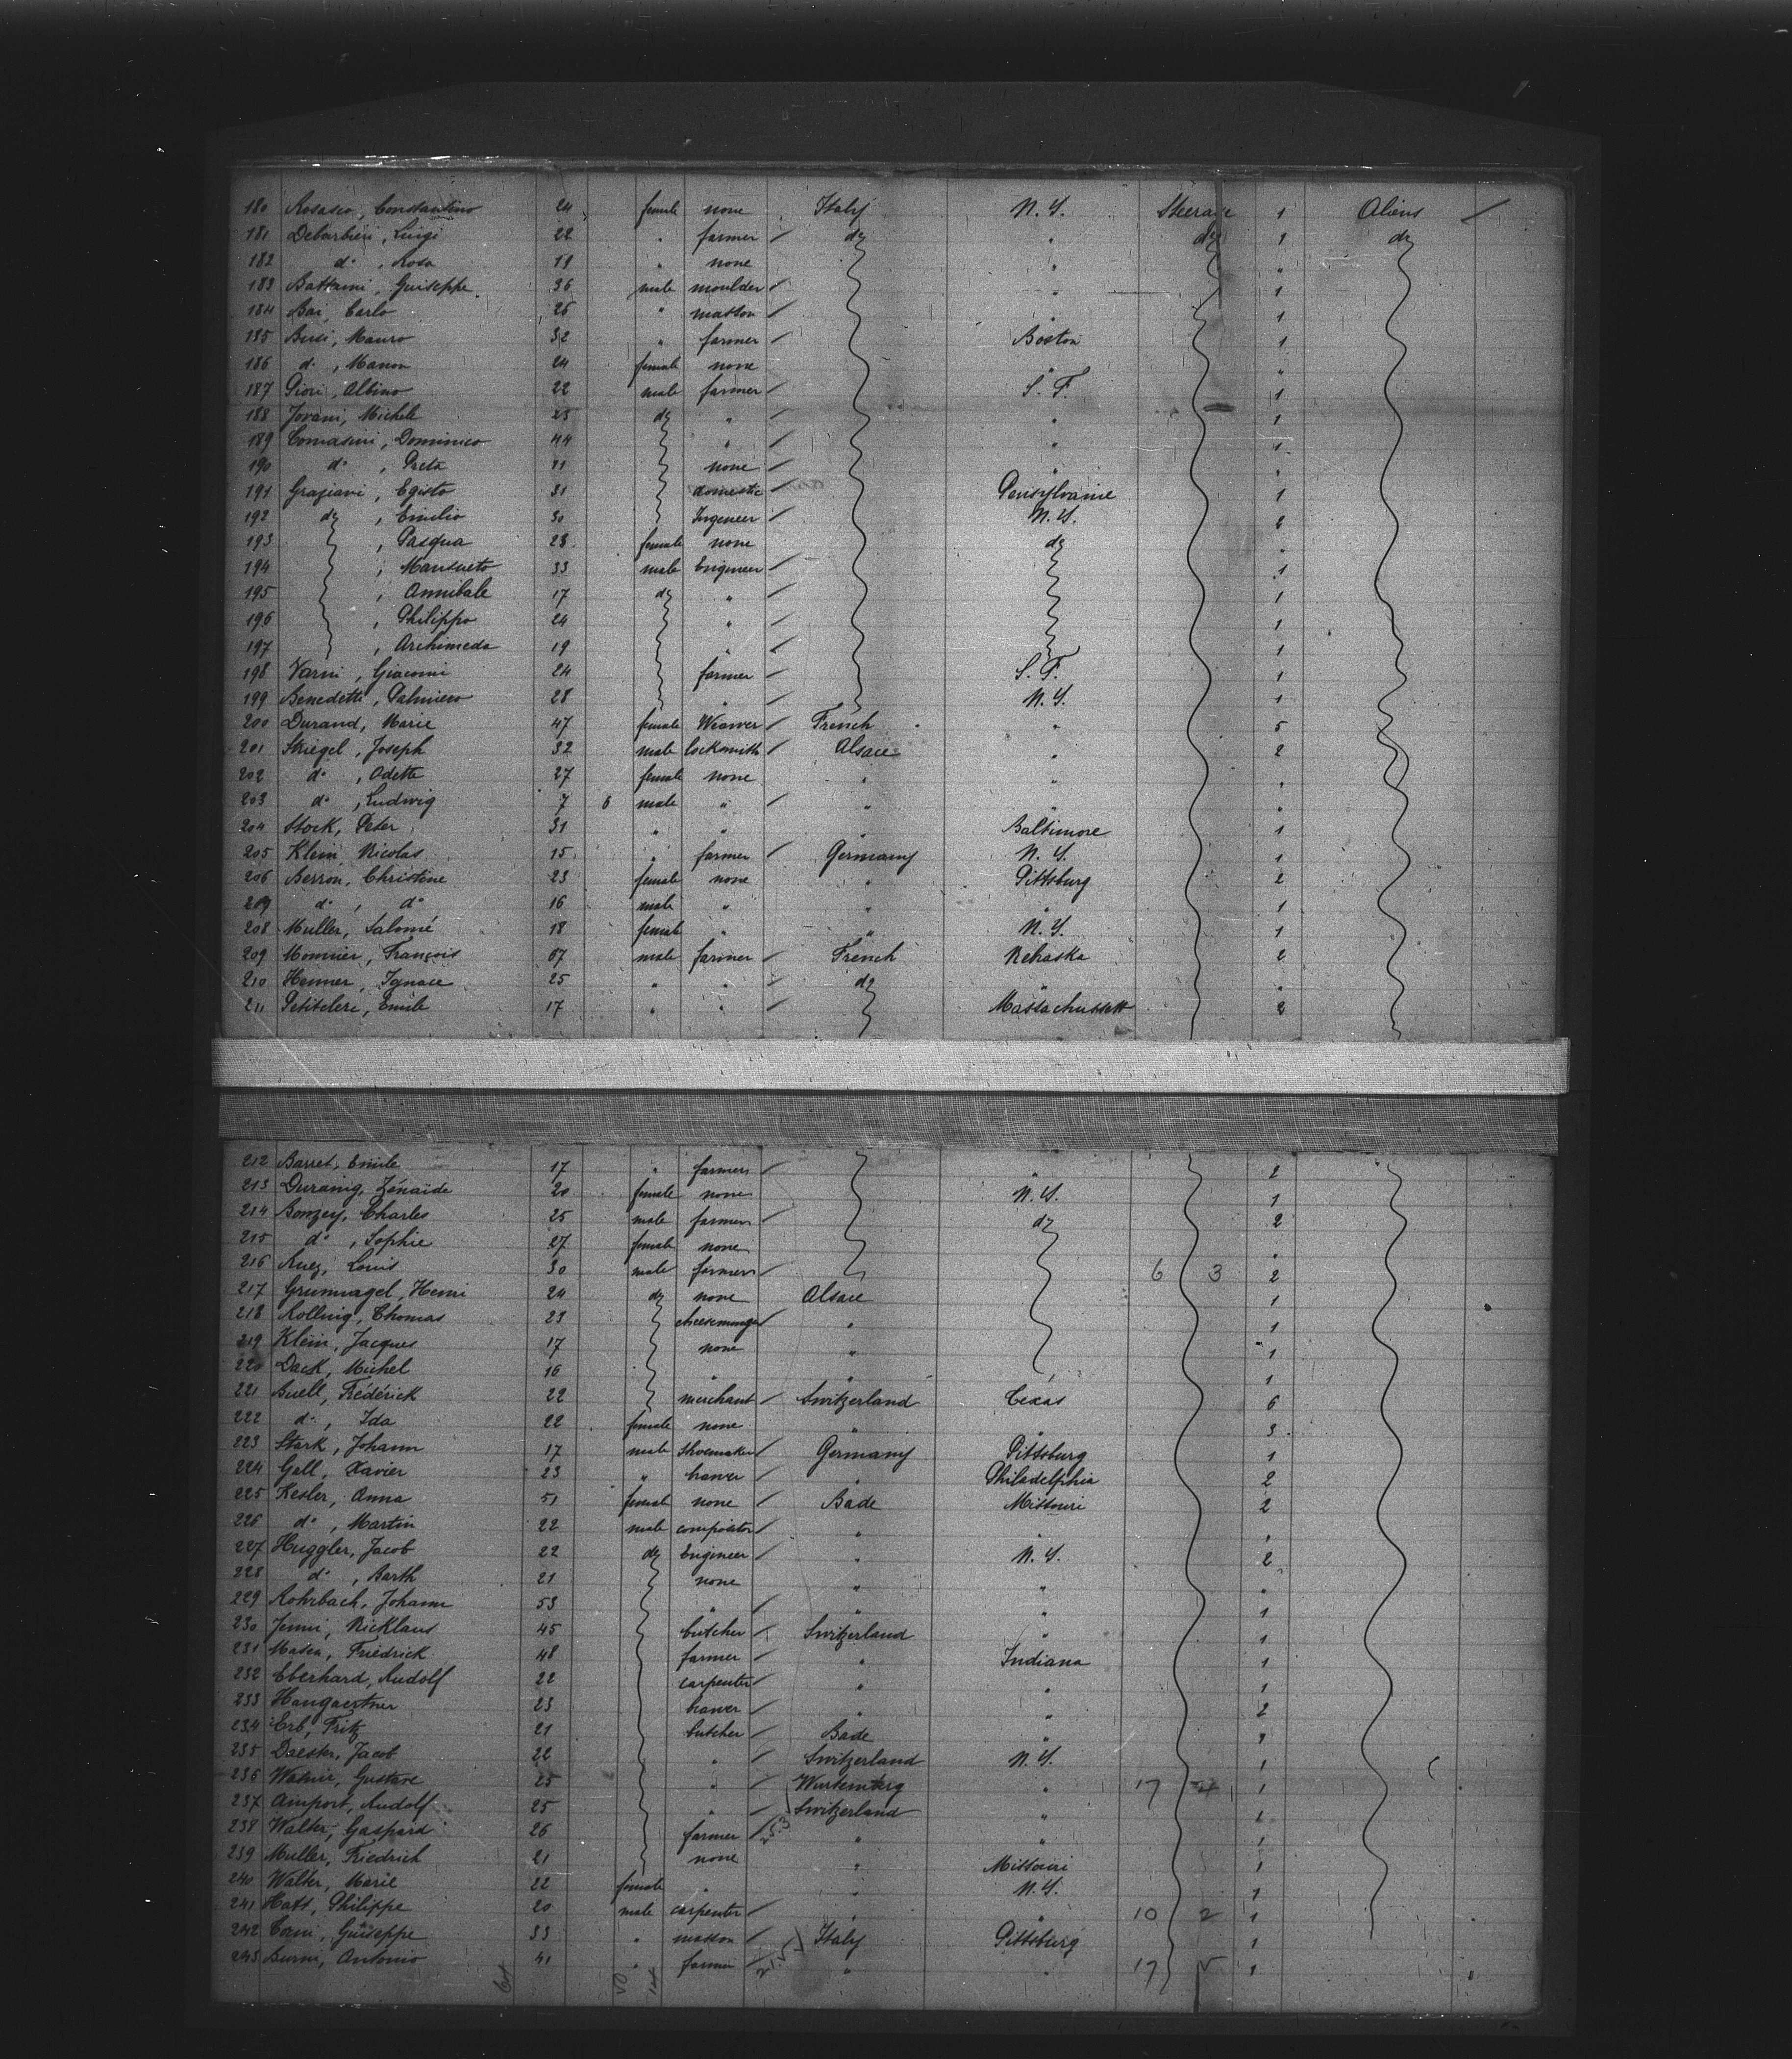 180 Rosasco, Constantino 24 female none Italy N.Y. Steerage 1 Aliens
181 Debarbieri, Luigi 22 " farmer do " do 1 do
182 do , Rosa 19 " none " "
183 Battaini, Guiseppe 36 male moulder " 1
184 Bai, Carlo 26 " masson " 1
185 Busi, Mauro 32 " farmer Boston 1
186 do , Manon 24 female none " "
187 Giori, Albino 22 male farmer S. F. 1
188 Jovani, Michele 25 do " " 1
189 Comasini, Dominico 44 " " 1
190 do , Preta 11 none " "
191 Graziani, Egisto 31 domestic Pensylvanie 1
192 do , Emilio 30 Ingeneer N.Y. 2
193 , Pasqua 28 female none do "
194 , Mansueto 33 male Engineer 1
195 , Annibale 17 do " 1
196 , Philippo 24 " 1
197 , Archimeda 19 " 1
198 Varni, Giacomi 24 farmer S. F. 1
199 Benedetti, Palmiero 28 " N.Y. 1
200 Durand, Marie 47 female Weawer French " 5
201 Striegel, Joseph 32 male locksmith Alsace " 2
202 do , Odette 27 female none " " "
203 do , Ludwig 7 6 male " " " "
204 Stock, Peter 31 " " " Baltimore 1
205 Klein, Nicolas 15 " farmer Germany N.Y. 1
206 Berron, Christine 23 female none " Pittsburg 2
207 do , do 16 male " " " 1
208 Muller, Salomé 18 female " " N.Y. 1
209 Monnier, François 67 male farmer French Nebraska 2
210 Henner, Ignace 25 " " do " "
211 Petitclerc, Emile 17 " " Massachussett 2
212 Barret, Emile 17 " farmer " 2
213 Duraing, Zénaïde 20 female none N.Y. 1
214 Bonzey, Charles 25 male farmer do 2
215 do , Sophie 27 female none "
216 Ruez, Louis 30 male farmer 6 3 2
217 Grunnagel, Henri 24 do none Alsace 1
218 Rolling, Thomas 23 cheesemunger " 1
219 Klein, Jacques 17 none " 1
220 Dack, Michel 16 " " 1
221 Buell, Frédérick 22 merchant Switzerland Texas 6
222 do , Ida 22 female none " " 3
223 Stark, Johann 17 male shoemaker Germany Pittsburg 1
224 Gall, Xavier 23 " brawer " Philadelphia 2
225 Kesler, Anna 51 female none Bade Missouri 2
226 do , Martin 22 male compositor " " "
227 Huggler, Jacob 22 do Engineer " N.Y. 2
228 do , Barth 21 none " " "
229 Rohrbach, Johann 53 " " " 1
230 Jenni, Nicklaus 45 butcher Switzerland " 1
231 Maseh, Friedrick 48 farmer " Indiana 1
232 Eberhard, Rudolf 22 carpenter " " 1
233 Haugaertner 23 brawer " " 2
234 Erb, Fritz 21 butcher Bade " 1
235 Daester, Jacob 22 " Switzerland N.Y. 1
236 Gustave 25 " Wurtemberg " 17 1
237 Amport, Rudolf 25 " Switzerland " 1
238 Walter, Gaspard 26 farmer " " 1
239 Muller, Friedrich 21 none " Missouri 1
240 Walter, Marie 22 female " " N.Y. 1
241 Hatt, Philippe 20 male carpenter " " 10 2 1
242 Corni, Guiseppe 33 " masson Italy Pittsburg 1
243 Burni, Antonio 41 " farmer " " 17 1